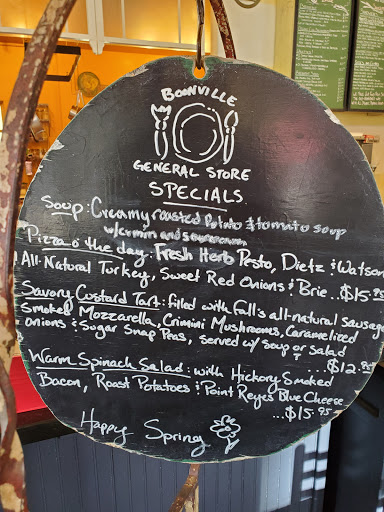 BOONVILLE
GENERAL STORE
SPECIALS
Soup: Creamy roasted Potato & tomato soup
w/cumin and
Pizza o' the day: Fresh Herb Pesto, Dietz & Watson
All-Natural Turkey, Sweet Red Onions & Brie...$15.95
Savory Custard Tart: filled with fall's all-natural sausage
Smoked Mozzarella, Crimini Mushrooms, Caramelized
onions & Sugar Snap Peas, served w/ soup or salad
...$12.95
Warm Spinach Salad: with Hickory Smoked
Bacon, Roast Potatoes & Point Reyes Blue Cheese
...$15.95
Happy Spring